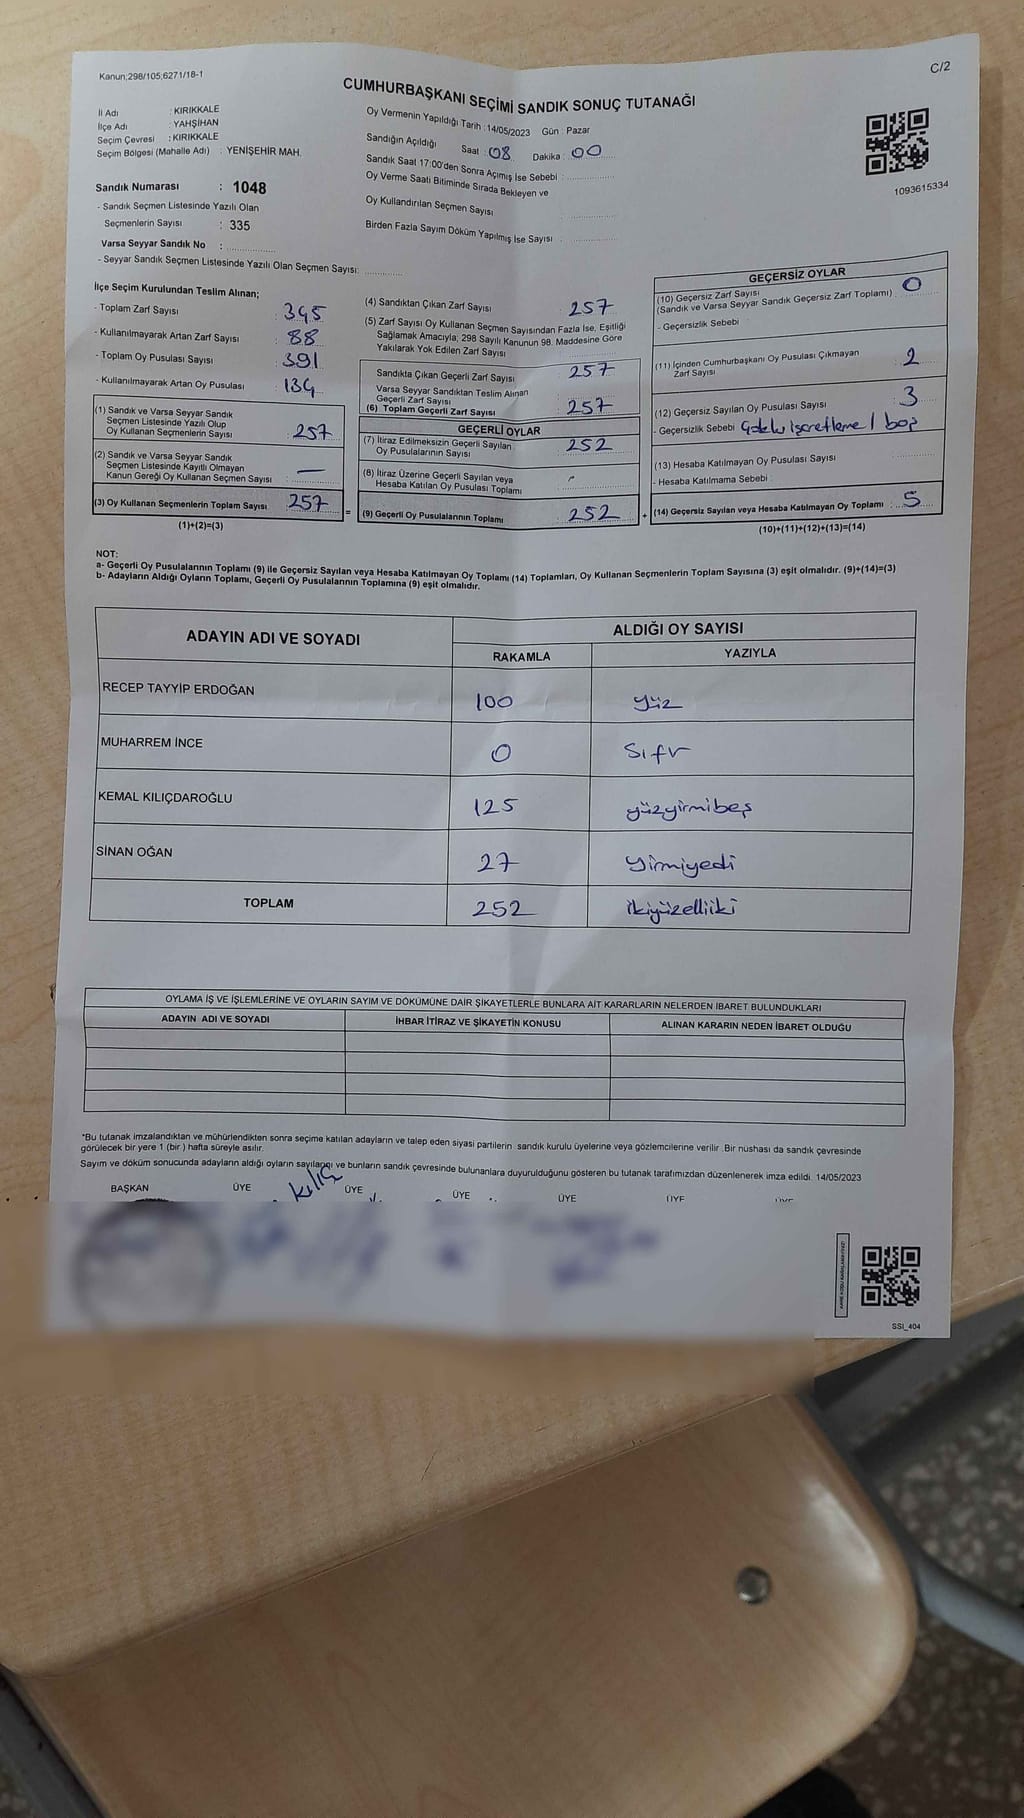 Kanun;298/105;6271/18-1
C/2
CUMHURBAŞKANI SEÇİMİ SANDIK SONUÇ TUTANAĞI
İl Adı : KIRIKKALE
İlçe Adı : YAHŞİHAN
Seçim Çevresi : KIRIKKALE
Seçim Bölgesi (Mahalle Adı) : YENİŞEHİR MAH.
Oy Vermenin Yapıldığı Tarih : 14/05/2023 Gün : Pazar
Sandığın Açıldığı Saat : 08 Dakika : 00
Sandık Saat 17:00'den Sonra Açımış İse Sebebi :
Oy Verme Saati Bitiminde Sırada Bekleyen ve
Oy Kullandırılan Seçmen Sayısı
Birden Fazla Sayım Döküm Yapılmış İse Sayısı :
1093615334
Sandık Numarası : 1048
- Sandık Seçmen Listesinde Yazılı Olan
Seçmenlerin Sayısı : 335
Varsa Seyyar Sandık No :
- Seyyar Sandık Seçmen Listesinde Yazılı Olan Seçmen Sayısı:
İlçe Seçim Kurulundan Teslim Alınan;
- Toplam Zarf Sayısı : 345
- Kullanılmayarak Artan Zarf Sayısı : 88
- Toplam Oy Pusulası Sayısı : 391
- Kullanılmayarak Artan Oy Pusulası : 134
(1) Sandık ve Varsa Seyyar Sandık
Seçmen Listesinde Yazılı Olup
Oy Kullanan Seçmenlerin Sayısı : 257
(2) Sandık ve Varsa Seyyar Sandık
Seçmen Listesinde Kayıtlı Olmayan
Kanun Gereği Oy Kullanan Seçmen Sayısı : —
(3) Oy Kullanan Seçmenlerin Toplam Sayısı : 257 =
(1)+(2)=(3)
(4) Sandıktan Çıkan Zarf Sayısı : 257
(5) Zarf Sayısı Oy Kullanan Seçmen Sayısından Fazla İse, Eşitliği
Sağlamak Amacıyla; 298 Sayılı Kanunun 98. Maddesine Göre
Yakılarak Yok Edilen Zarf Sayısı
Sandıkta Çıkan Geçerli Zarf Sayısı : 257
Varsa Seyyar Sandıktan Teslim Alınan
Geçerli Zarf Sayısı
(6) Toplam Geçerli Zarf Sayısı : 257
GEÇERLİ OYLAR
(7) İtiraz Edilmeksizin Geçerli Sayılan
Oy Pusulalarının Sayısı : 252
(8) İtiraz Üzerine Geçerli Sayılan veya
Hesaba Katılan Oy Pusulası Toplamı : -
(9) Geçerli Oy Pusulalarının Toplamı : 252 +
GEÇERSİZ OYLAR
(10) Geçersiz Zarf Sayısı
(Sandık ve Varsa Seyyar Sandık Geçersiz Zarf Toplamı) : 0
- Geçersizlik Sebebi :
(11) İçinden Cumhurbaşkanı Oy Pusulası Çıkmayan
Zarf Sayısı : 2
(12) Geçersiz Sayılan Oy Pusulası Sayısı : 3
- Geçersizlik Sebebi Çoklu işaretleme / boş
(13) Hesaba Katılmayan Oy Pusulası Sayısı :
- Hesaba Katılmama Sebebi :
(14) Geçersiz Sayılan veya Hesaba Katılmayan Oy Toplamı : 5
(10)+(11)+(12)+(13)=(14)
NOT:
a- Geçerli Oy Pusulalarının Toplamı (9) ile Geçersiz Sayılan veya Hesaba Katılmayan Oy Toplamı (14) Toplamları, Oy Kullanan Seçmenlerin Toplam Sayısına (3) eşit olmalıdır. (9)+(14)=(3)
b- Adayların Aldığı Oyların Toplamı, Geçerli Oy Pusulalarının Toplamına (9) eşit olmalıdır.
ADAYIN ADI VE SOYADI ALDIĞI OY SAYISI
RAKAMLA YAZIYLA
RECEP TAYYİP ERDOĞAN 100 yüz
MUHARREM İNCE 0 Sıfır
KEMAL KILIÇDAROĞLU 125 yüzyirmibeş
SİNAN OĞAN 27 Yirmiyedi
TOPLAM 252 ikiyüzelliiki
OYLAMA İŞ VE İŞLEMLERİNE VE OYLARIN SAYIM VE DÖKÜMÜNE DAİR ŞİKAYETLERLE BUNLARA AİT KARARLARIN NELERDEN İBARET BULUNDUKLARI
ADAYIN ADI VE SOYADI İHBAR İTİRAZ VE ŞİKAYETİN KONUSU ALINAN KARARIN NEDEN İBARET OLDUĞU
*Bu tutanak imzalandıktan ve mühürlendikten sonra seçime katılan adayların ve talep eden siyasi partilerin sandık kurulu üyelerine veya gözlemcilerine verilir. Bir nushası da sandık çevresinde
görülecek bir yere 1 (bir ) hafta süreyle asılır.
Sayım ve döküm sonucunda adayların aldığı oyların sayılarını ve bunların sandık çevresinde bulunanlara duyurulduğunu gösteren bu tutanak tarafımızdan düzenlenerek imza edildi. 14/05/2023
BAŞKAN ÜYE kılıç ÜYE ÜYE ÜYE ÜYE ÜYE
SSI_404